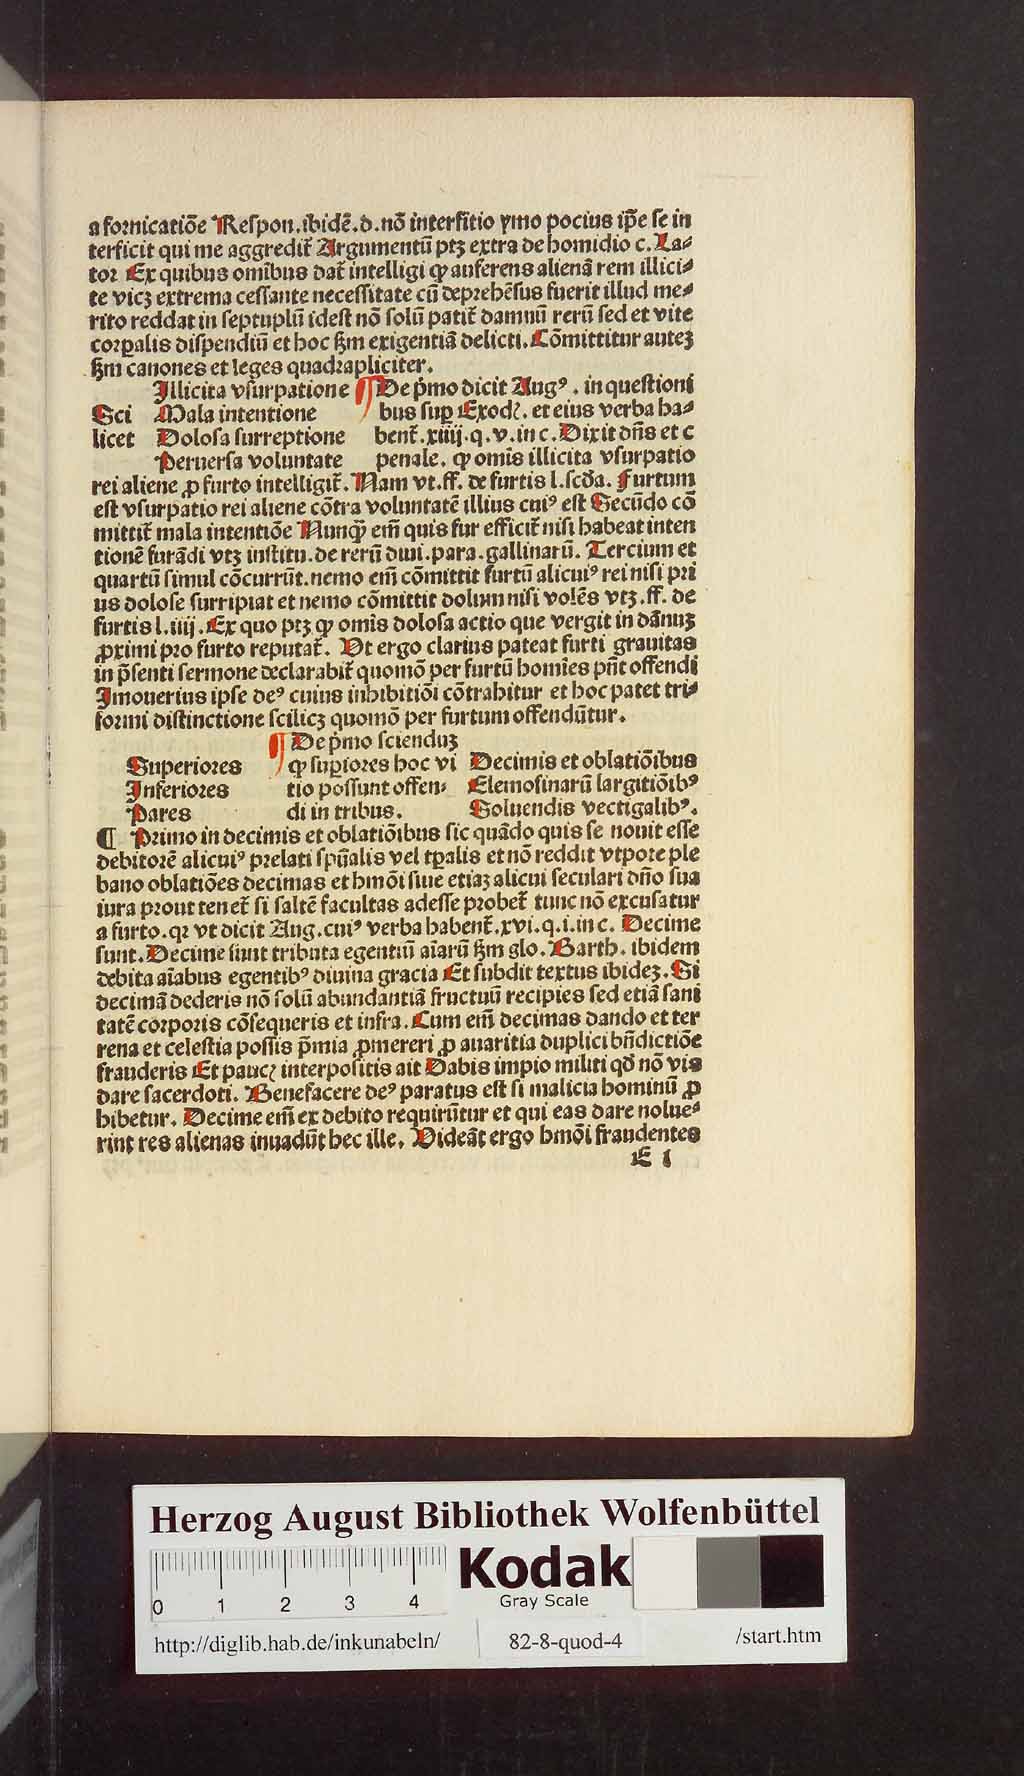 a fornicatiōe Respon. ibidē. d. nō interfitio ymo pocius ip̄e se in
terficit qui me aggredit᷑ Argumentū ptꝫ extra de homidio c. La⸗
tor Ex quibus omībus dat᷑ intelligi ꝙ auferens alienā rem illici⸗
te vicꝫ extrema cessante necessitate cū deprehēsus fuerit illud me⸗
rito reddat in septuplū idest nō solū patit᷑ damnū rerū sed et vite
corꝑalis dispendiū et hoc ẜm exigentiā delicti. Cōmittitur auteꝫ
ẜm canones et leges quadrapliciter.
Illicita vsurpatione ¶ De p̄mo dicit Augꝰ. in questioni
Sci Mala intentione bus suꝑ Exodꝭ. et eius verba ha⸗
licet Dolosa surreptione bent᷑. xiiij. q. v. in c. Dixit dn̄s et c
Peruersa voluntate penale. ꝙ omīs illicita vsurpatio
rei aliene ꝓ furto intelligit᷑. Nam vt. ff. de furtis l. scd̄a. Furtum
est vsurpatio rei aliene cōtra voluntatē illius cuiꝰ est Secūdo cō
mittit᷑ mala intentiōe Nunꝙ̄ em̄ quis fur efficit᷑ nisi habeat inten
tionē furādi vtꝫ institu. de rerū diui. para. gallinarū. Tercium et
quartū simul cōcurrūt. nemo em̄ cōmittit furtū alicuiꝰ rei nisi pri
us dolose surripiat et nemo cōmittit dolum nisi volēs vtꝫ. ff. de
furtis l. iiij. Ex quo ptꝫ ꝙ omīs dolosa actio que vergit in dānuꝫ
ꝓximi pro furto reputat᷑. Vt ergo clarius pateat furti grauitas
in p̄senti sermone declarabit᷑ quomō per furtū homīes pn̄t offendi
Imouerius ipse deꝰ cuius inhibitiōi cōtrahitur et hoc patet tri⸗
formi distinctione scilicꝫ quomō per furtum offendūtur.
¶ De p̄mo scienduꝫ
Superiores ꝙ suꝑiores hoc vi Decimis et oblatiōibus
Inferiores tio possunt offen⸗ Elemosinarū largitiōibꝰ
Pares di in tribus. Soluendis vectigalibꝰ.
¶ Primo in decimis et oblatiōibus sic quādo quis se nouit esse
debitorē alicuiꝰ prelati spūalis vel tꝑalis et nō reddit vtpote ple
bano oblatiōes decimas et hmōi siue etiaꝫ alicui seculari dn̄o sua
iura prout tenet᷑ si saltē facultas adesse probet᷑ tunc nō excusatur
a furto. qꝛ vt dicit Aug. cuiꝰ verba habent᷑. xvi. q. i. in c. Decime
sunt. Decime sunt tributa egentiū aīarū ẜm glo. Barth. ibidem
debita aīabus egentibꝰ diuina gracia Et subdit textus ibideꝫ. Si
decimā dederis nō solū abundantiā fructuū recipies sed etiā sani
tatē corporis cōsequeris et infra. Cum em̄ decimas dando et ter
rena et celestia possis p̄mia ꝓmereri ꝓ auaritia duplici bn̄dictiōe
frauderis Et paucꝭ interpositis ait Dabis impio militi qd̄ nō vis
dare sacerdoti. Benefacere deꝰ paratus est si malicia hominū ꝓ
hibetur. Decime em̄ ex debito requirūtur et qui eas dare nolue⸗
rint res alienas inuadūt hec ille. Videāt ergo hmōi fraudentes
E 1
Herzog August Bibliothek Wolfenbüttel
Kodak
Gray Scale
0 1 2 3 4
http://diglib.hab.de/inkunabeln/ 82-8-quod-4 /start.htm